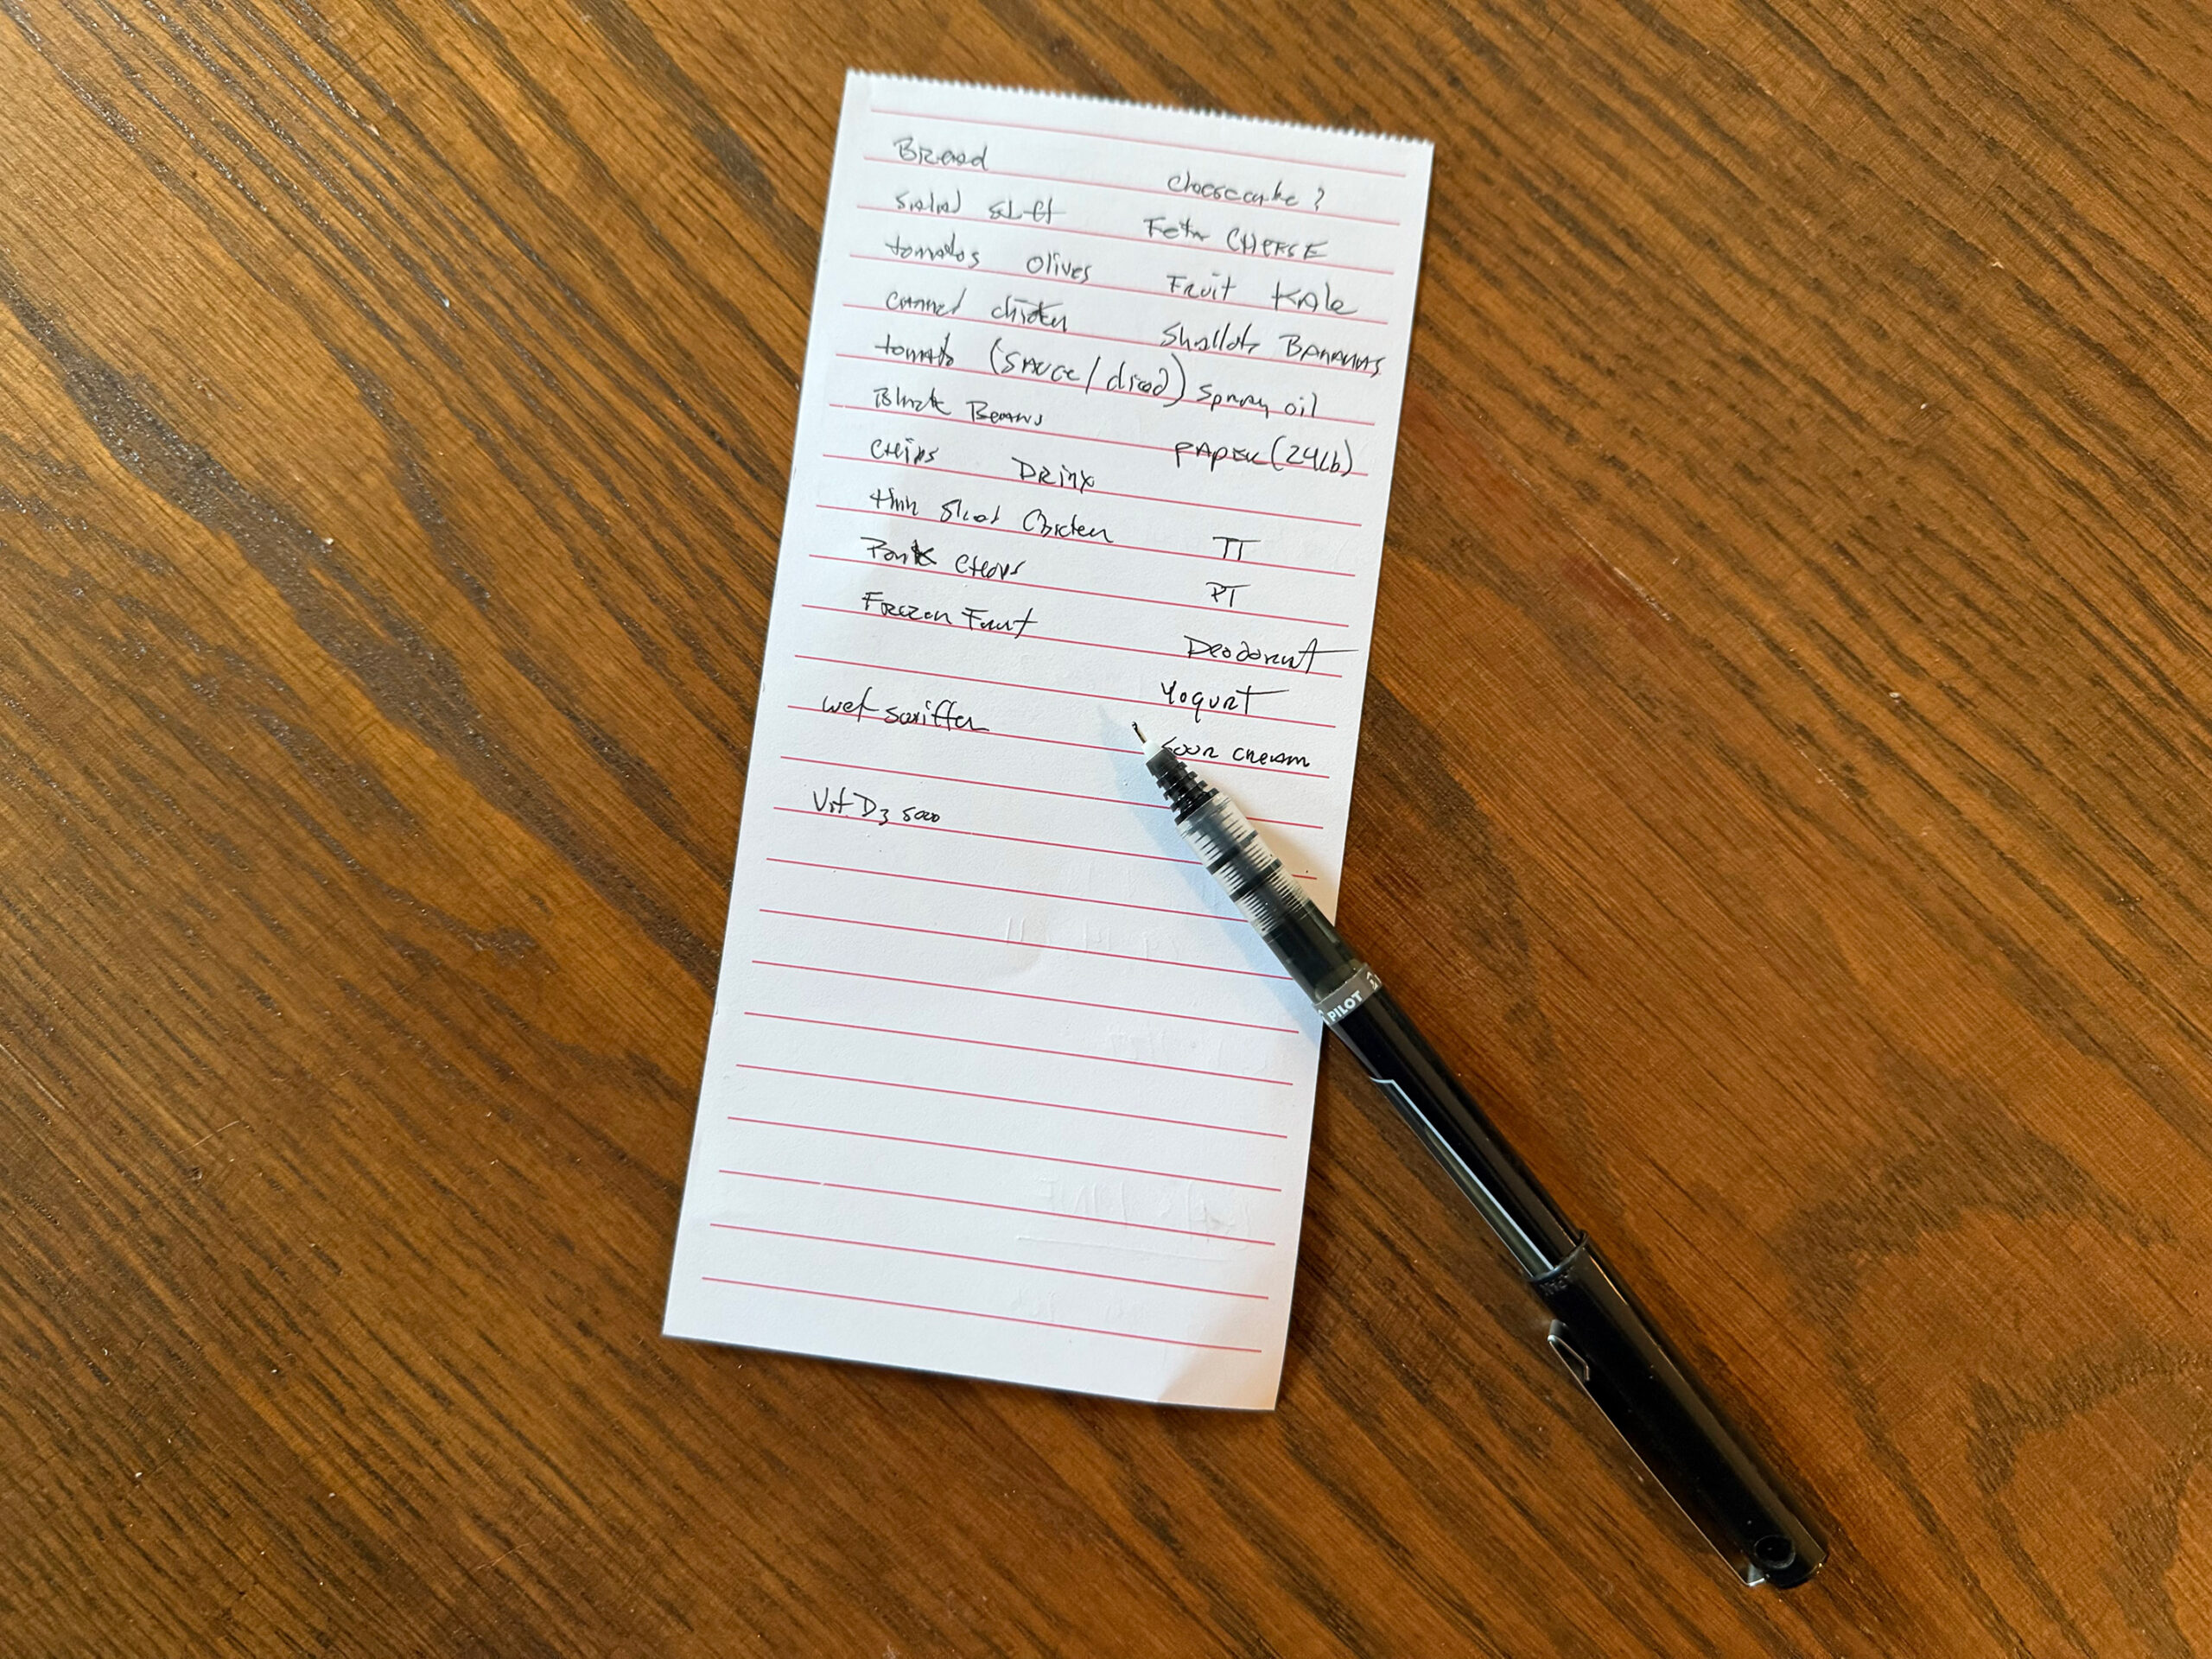 Bread
cheesecake ?
salad stuff
Feta CHEESE
tomatos olives
Fruit KAle
canned chicken
Shallots BANANAS
tomato (SAUCE/diced)
spray oil
Black Beans
PAPER (24lb)
CHIPS DRINK
thin sliced Chicken
TT
Pork CHOPS
PT
Frozen Fruit
Deodorant
Yogurt
wet swiffer
Sour cream
Vit. D3 5000
PILOT